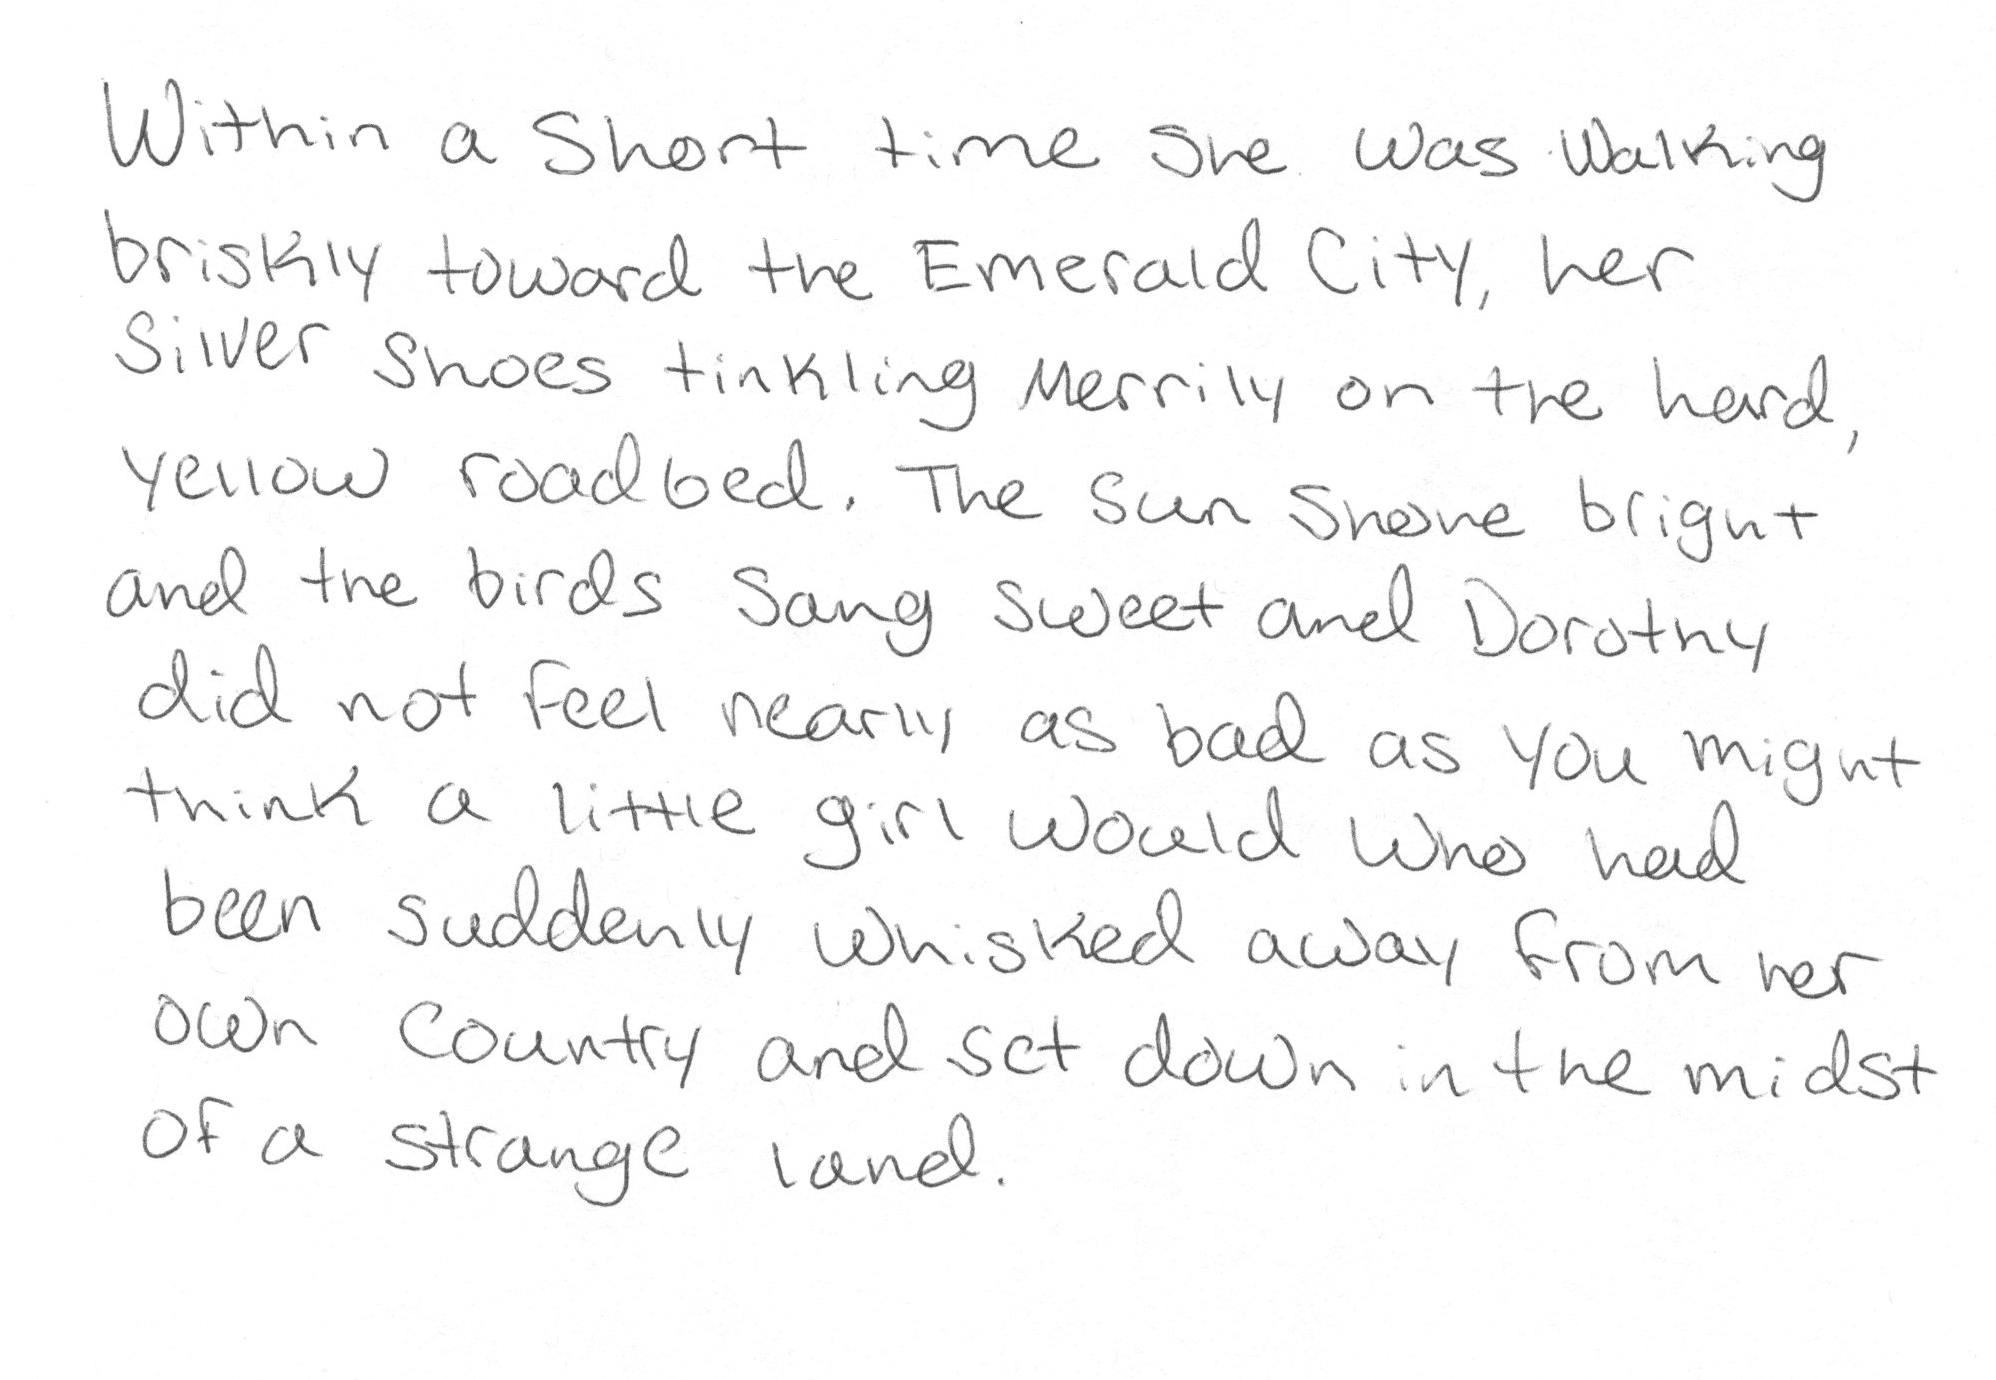 Within a short time she was walking
briskly toward the Emerald City, her
Silver Shoes tinkling merrily on the hard,
yellow roadbed. The sun shone bright
and the birds sang sweet and Dorothy
did not feel nearly as bad as you might
think a little girl would who had
been suddenly whisked away from her
own country and set down in the midst
of a strange land.